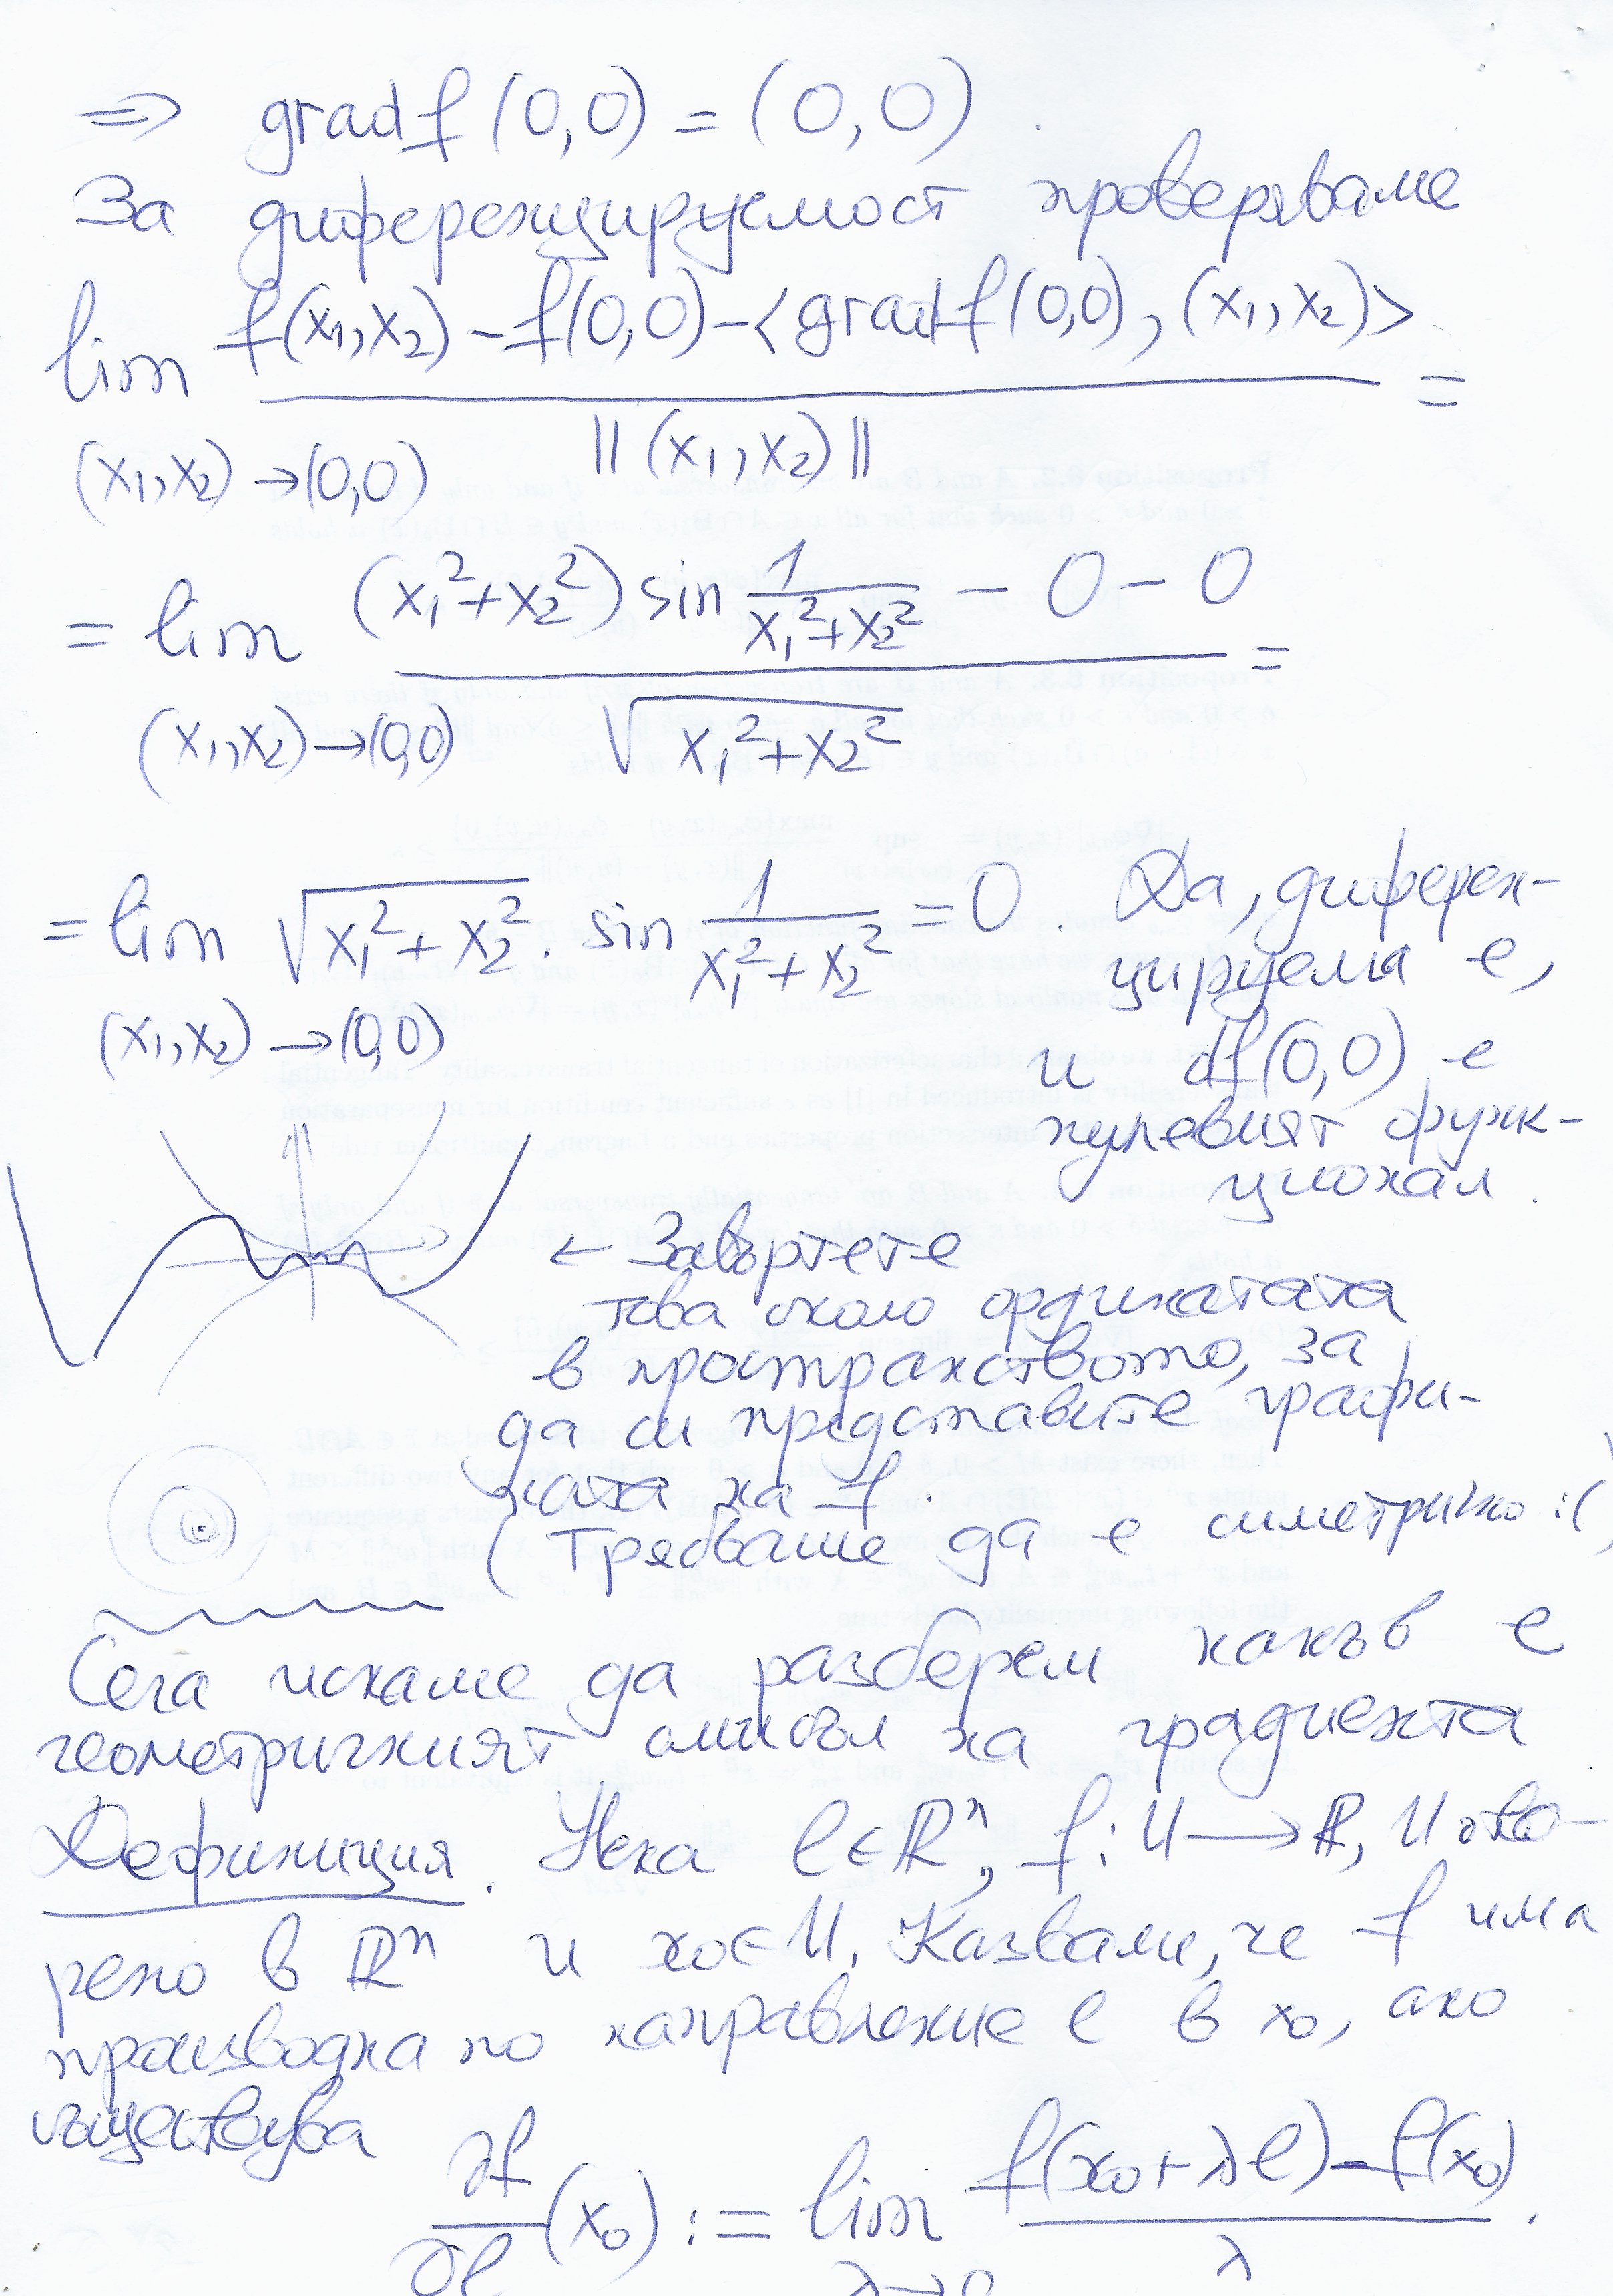 ⇒ grad f (0,0) = (0,0)
За диференцируемост проверяваме
lim f(x₁,x₂) - f(0,0) - <grad f(0,0), (x₁,x₂)> =
(x₁,x₂) → (0,0) ||(x₁,x₂)||
= lim (x₁²+x₂²) sin 1/(x₁²+x₂²) - 0 - 0 =
(x₁,x₂) → (0,0) √(x₁²+x₂²)
= lim √(x₁²+x₂²) . sin 1/(x₁²+x₂²) = 0 Да, диферен-
(x₁,x₂) → (0,0) цируема е,
и df(0,0) е
нулевият функ-
ционал.
← Завъртете
това около ординатата
в пространството, за
да си представите графи-
ката на f.
(Трябваше да е симетрично :( )
Сега искаме да разберем какъв е
геометричният смисъл на градиента
Дефиниция. Нека l∈ℝⁿ, f: U → ℝ, U отво-
рено в ℝⁿ и x₀∈U. Казваме, че f има
производна по направление l в x₀, ако
съществува
∂f/∂l (x₀) := lim f(x₀+λl) - f(x₀) .
λ→0 λ